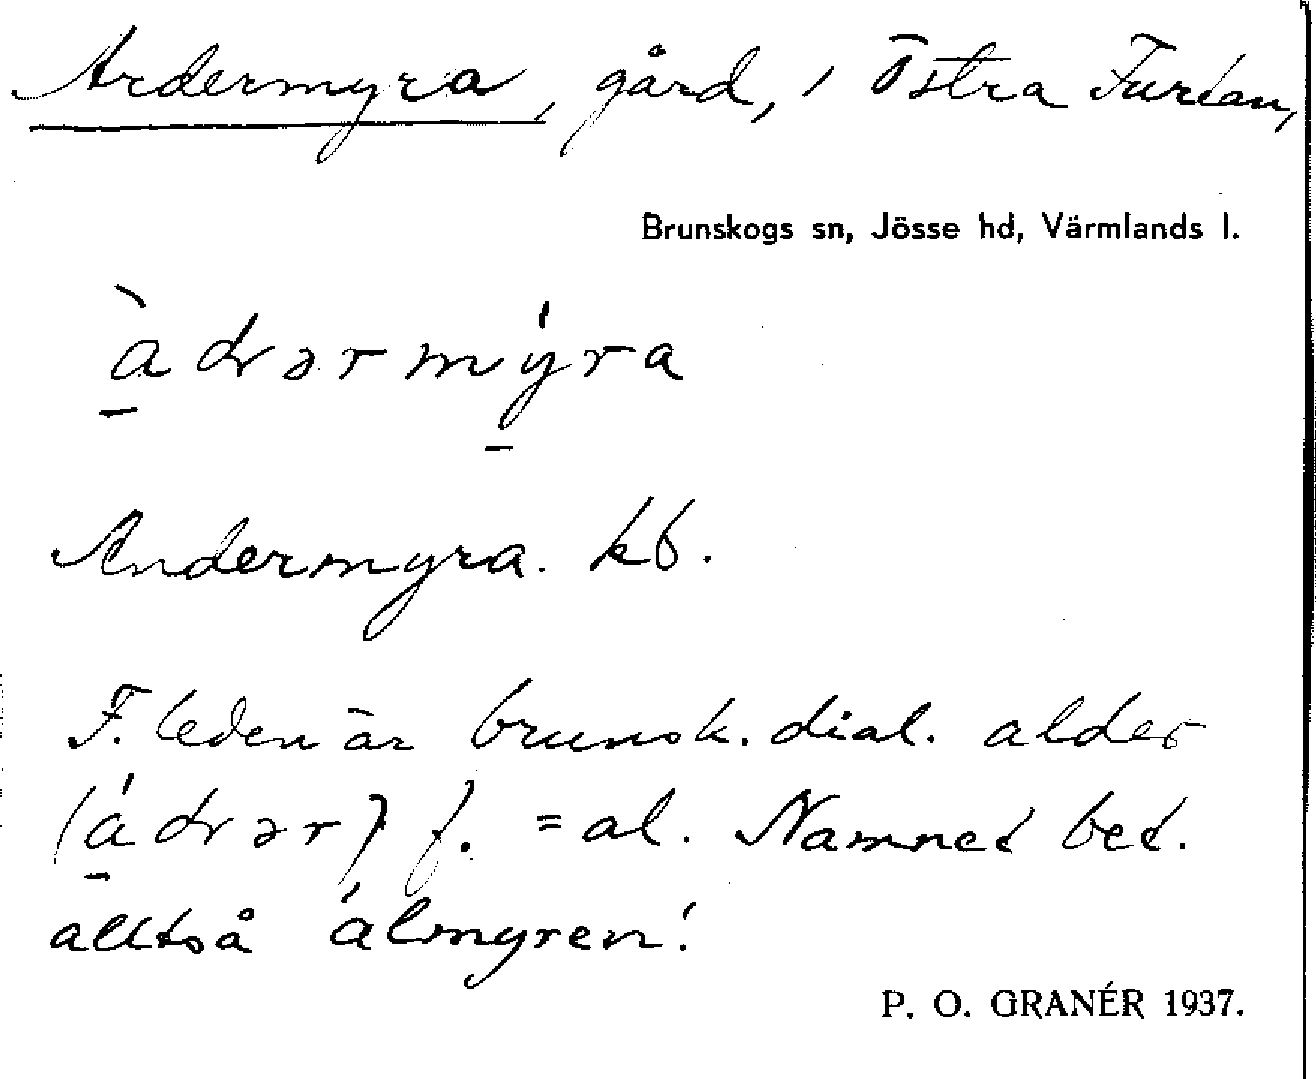 Ardermyra, gård, i Östra Furtan,
Brunskogs sn, Jösse hd, Värmlands l.
àdərmýra
Andermyra. kb.
F. leden är brunsk. dial. alder
(ádər) f. = al. Namnet bet.
alltså 'almyren'.
P. O. GRANÉR 1937.